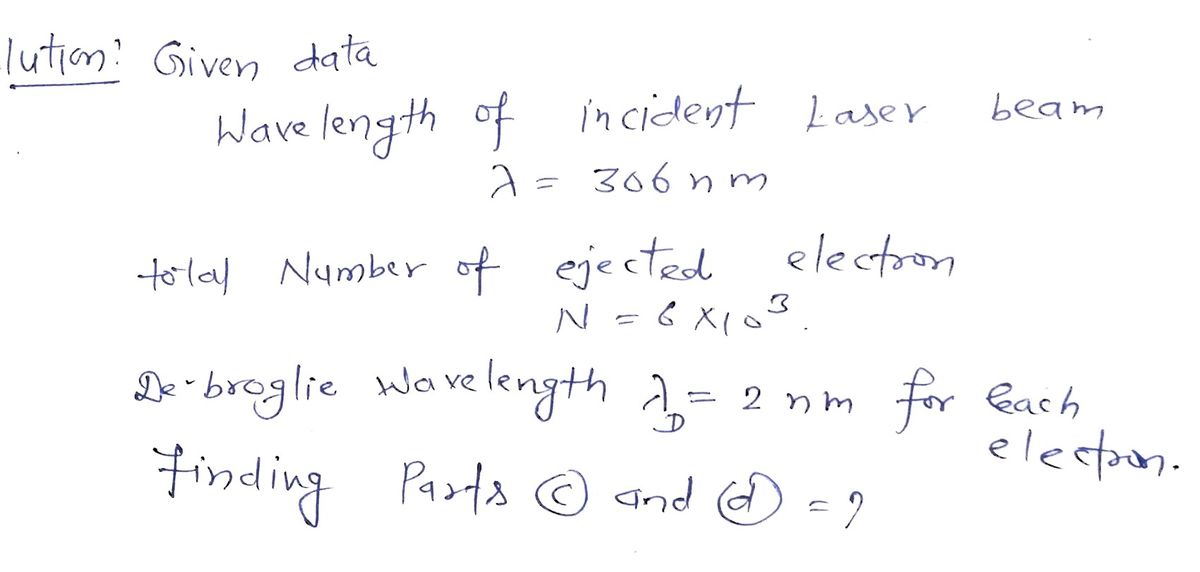 lution: Given data
Wavelength of incident Laser beam
λ = 306 nm
total Number of ejected electron
N = 6 × 10³.
De-broglie wavelength λ_D = 2 nm for each
electron.
Finding Parts ⓒ and ⓓ = ?